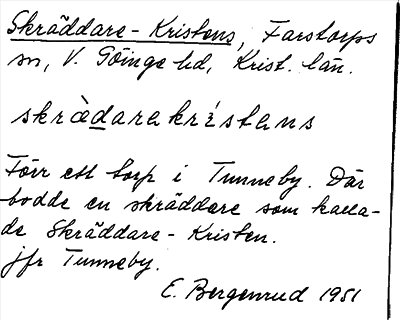 Skräddare-Kristens, Farstorps
sn, V. Göinge hd, Krist. län.
skrädarekristens
Förr ett torp i Tunneby. Där
bodde en skräddare som kalla-
de Skräddare-Kristen.
jfr Tunneby.
E. Bergenrud 1951